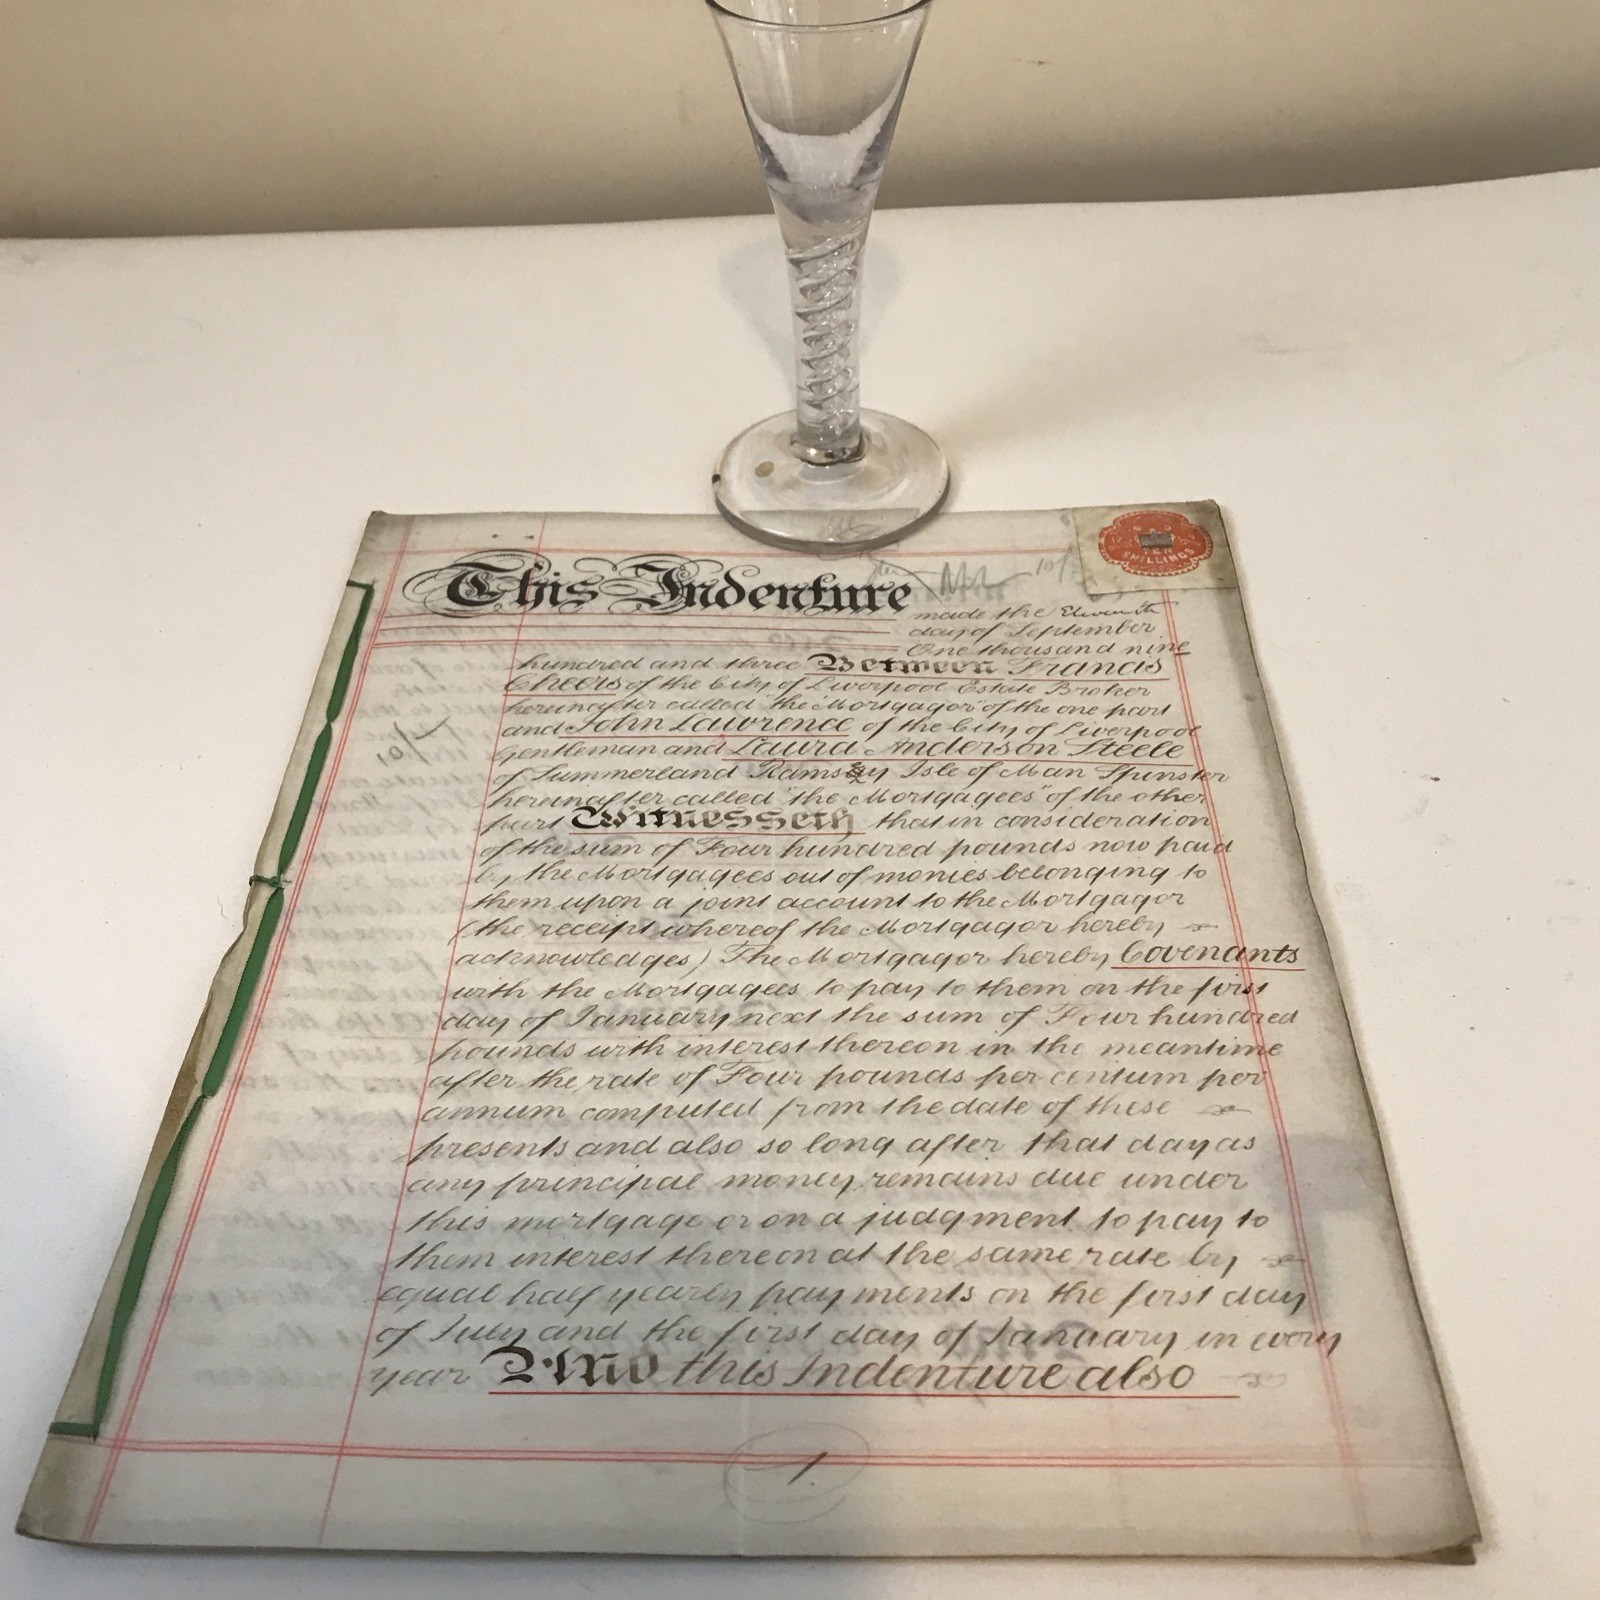 TEN
SHILLINGS
This Indenture
10/
made the Eleventh
day of September
One thousand nine
hundred and three Between Francis
Cheers of the City of Liverpool Estate Broker
hereinafter called "the Mortgagor" of the one part
and John Lawrence of the City of Liverpool
Gentleman and Laura Anderson Steele
of Summerland Ramsey Isle of Man Spinster
hereinafter called "the Mortgagees" of the other
part Witnesseth that in consideration
of the sum of Four hundred pounds now paid
by the Mortgagees out of monies belonging to
them upon a joint account to the Mortgagor
(the receipt whereof the Mortgagor hereby
acknowledges) The Mortgagor hereby Covenants
with the Mortgagees to pay to them on the first
day of January next the sum of Four hundred
pounds with interest thereon in the meantime
after the rate of Four pounds per centum per
annum computed from the date of these
presents and also so long after that day as
any principal money remains due under
this mortgage or on a judgment to pay to
them interest thereon at the same rate by
equal half yearly payments on the first day
of July and the first day of January in every
year And this Indenture also
1.